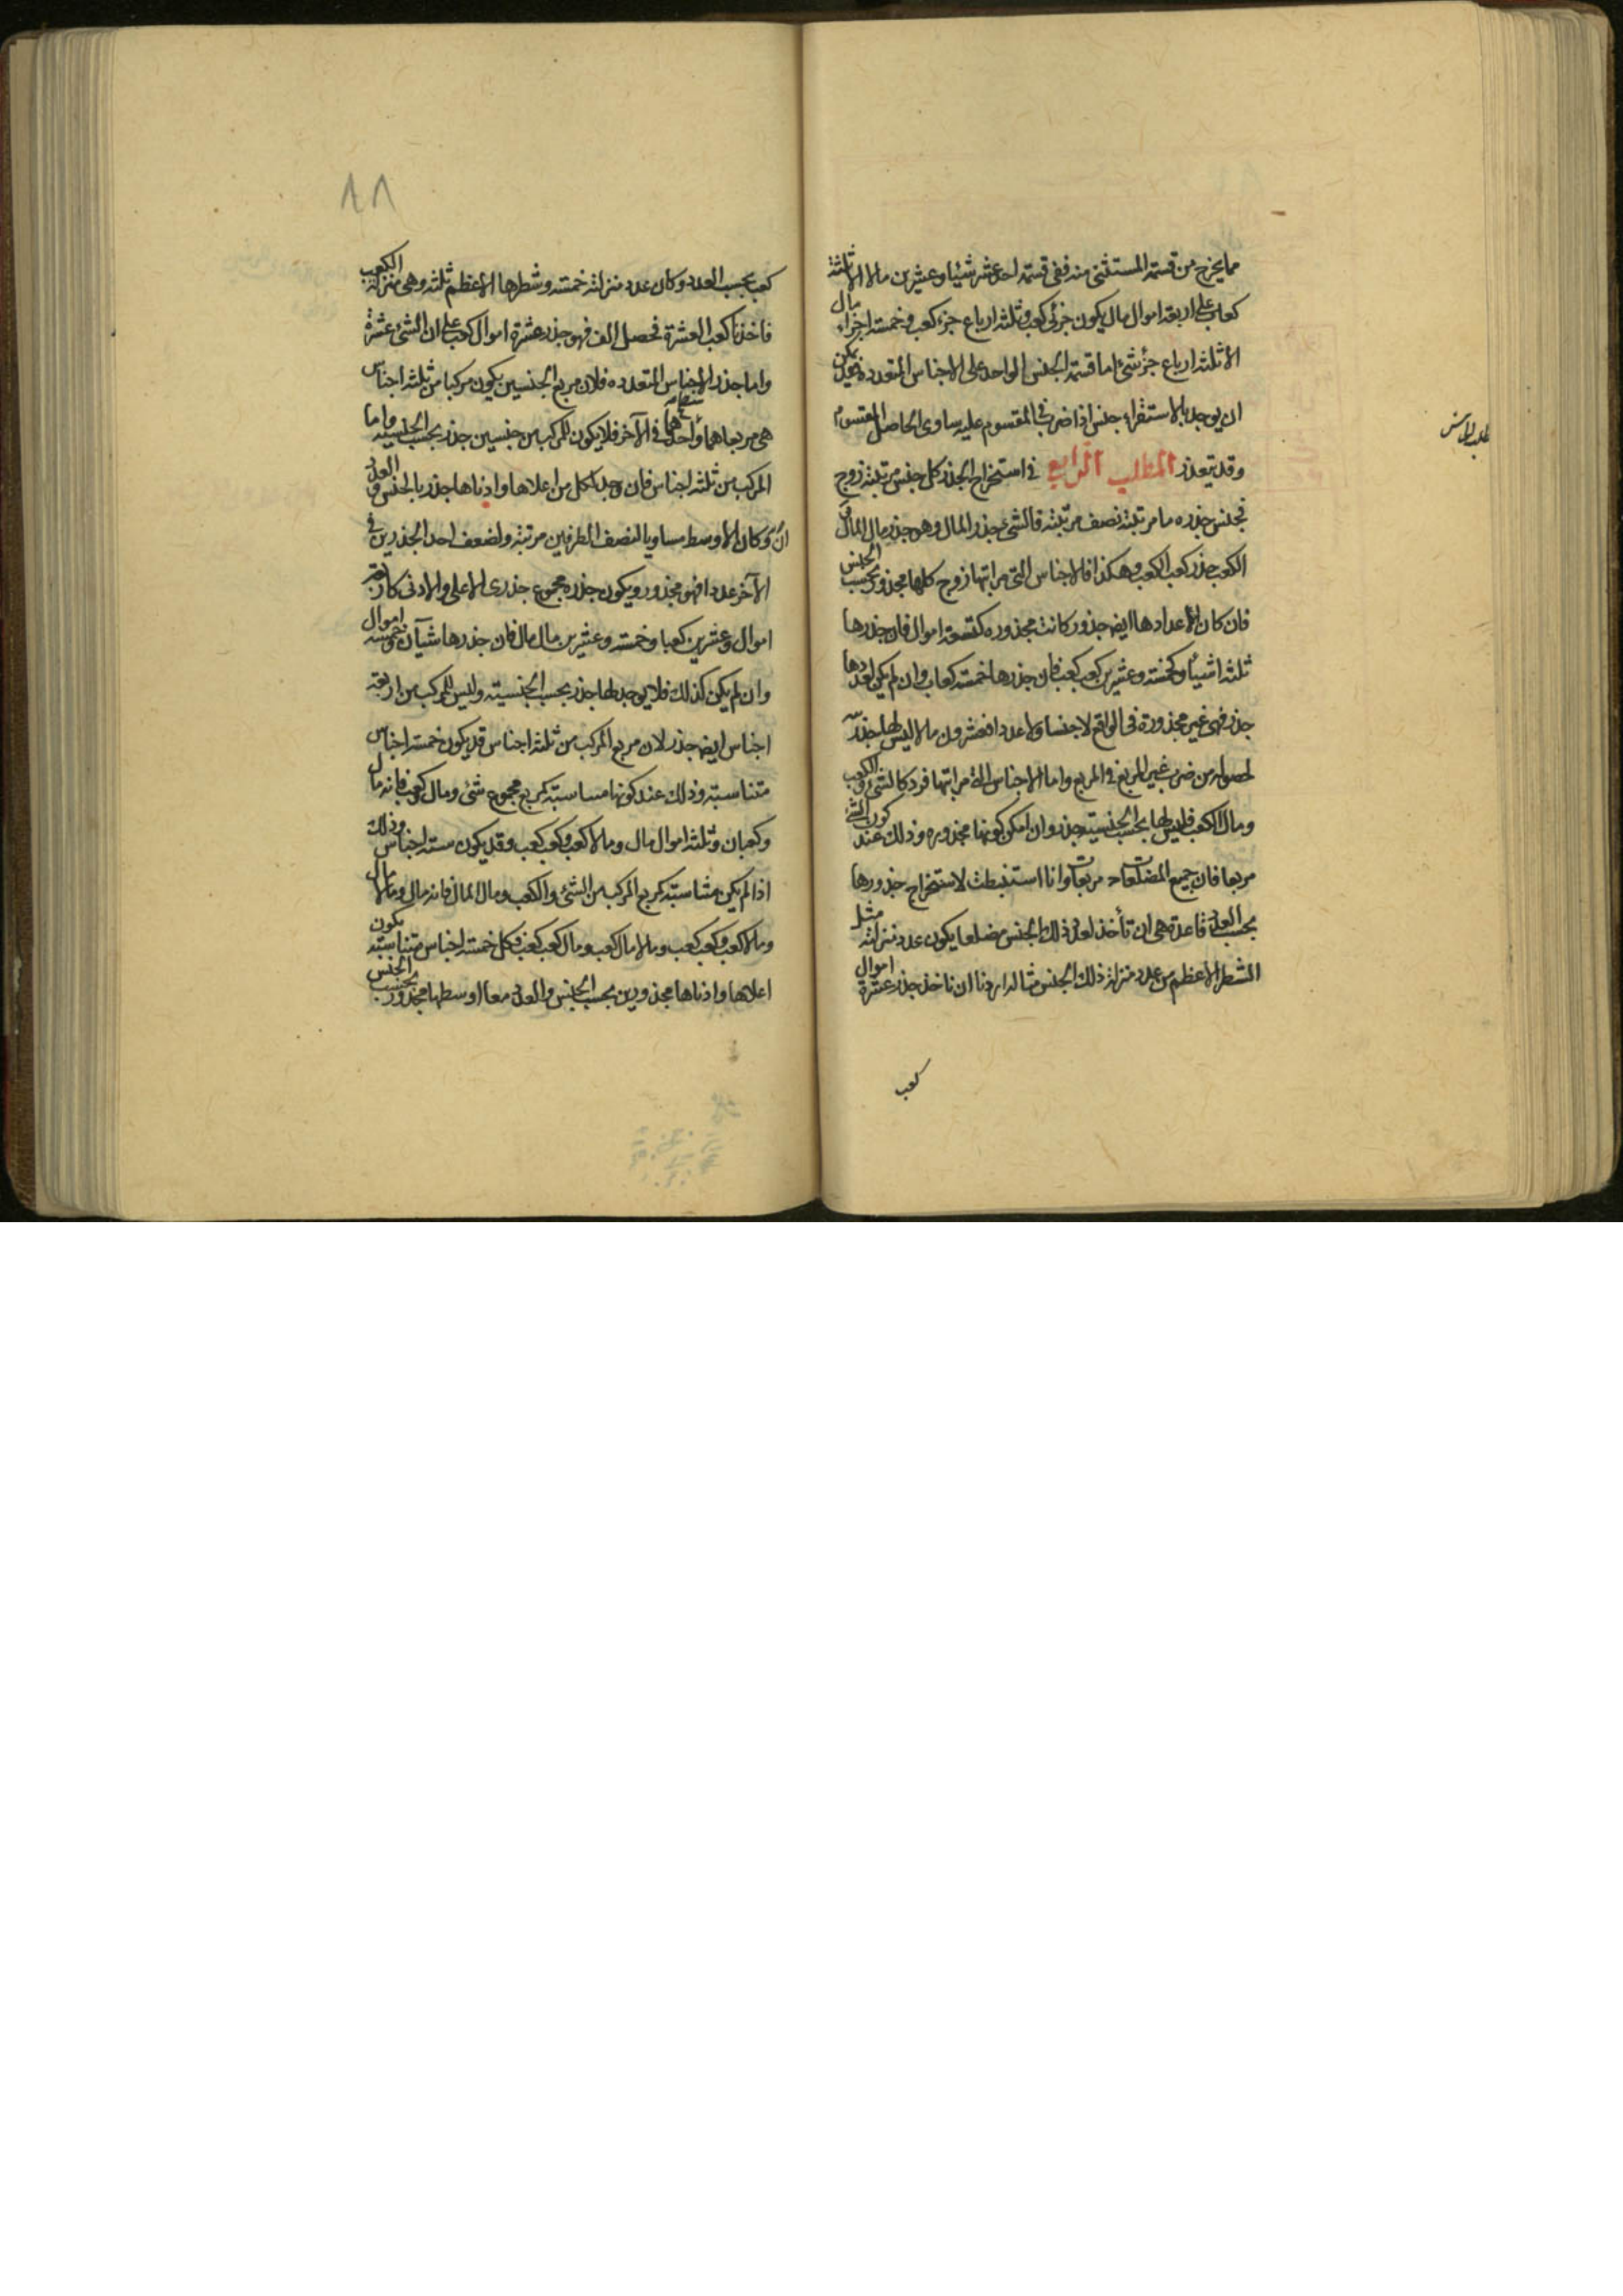 مما يخرج من قسمة المستثنى منه ففى قسمة احد عشر شيئا وعشرين مالا الا ثلثة
كعاب على اربعة اموال مال يكون جزئى كعب وثلثة ارباع جزء كعب وخمسة اجزاء مال
الا ثلثة ارباع جزء شئ اما قسمة الجنس الواحد على الاجناس المتعدده فيمكن
ان يوجد بالاستقراء جنس اذا ضرب فى المقسوم عليه ساوى الحاصل المقسوم
وقد يتعذر المطلب الرابع فى استخراج الجذر كل جنس مرتبته زوج
فجنس جذره ما مرتبته نصف مرتبته فالشئ جذر المال وهو جذر مال المال و
الكعب جذر كعب الكعب وهكذا فالاجناس التى مراتبها زوج كلها مجذور بحسب الجنس
فان كان لاعدادها ايضا جذور كانت مجذوره كتسعة اموال فان جذرها
ثلثة اشياء وكخمسة وعشرين كعب كعب فان جذرها خمسة كعاب وان لم يكن لعددها
جذر فهى غير مجذورة فى الواقع لا جنسا ولا عددا فعشرون مالا ليس لها جذر
لحصوله من ضرب غير المربع فى المربع واما الاجناس التى مراتبها فرد كالشئ والكعب
ومال الكعب فليس لها بحسب الجنسية جذر وان امكن كونها مجذوره وذلك عند كون الشئ
مربعا فان جميع المضلعات مربعات وانا استنبطت لاستخراج جذورها
بحسب العدد قاعدة هى ان تأخذ لعدد ذلك الجنس مضلعا يكون عدد منزلته مثل
الشطر الاعظم من عدد منزلة ذلك الجنس مثاله اردنا ان ناخذ جذر عشرة اموال
كعب
٨٨
كعب بحسب العدد وكان عدد منزلته خمسة وشطرها الاعظم ثلثة وهى منزلة الكعب
فاخذنا كعب العشرة فحصل الف فهو جذر عشرة اموال كعب على ان الشئ عشرة
واما جذر الاجناس المتعدده فلان مربع الجنسين يكون مركبا من ثلثة اجناس
هى مربعاهما واحدهما فى الآخر فلا يكون للمركب من جنسين جذر بحسب الجنسيه واما
المركب من ثلثة اجناس فان وجد لكل من اعلاها وادناها جذر بالجنس و العدد
وكان الاوسط مساويا لنصف الطرفين مرتبة ولضعف احد الجذرين فى
الآخر عددا فهو مجذور ويكون جذره مجموع جذرى الاعلى والادنى كاربعة
اموال وعشرين كعبا وخمسة وعشرين مال مال فان جذرها شيآن وخمسة اموال
وان لم يكن كذلك فلا يوجد لها جذر بحسب الجنسية وليس للمركب من اربعة
اجناس ايضا جذر لان مربع المركب من ثلثة اجناس قد يكون خمسة اجناس
متناسبة وذلك عند كونها متناسبة كمربع مجموع شئ ومال وكعب فانه مال
وكعبان وثلثة اموال مال ومالا كعب وكعب كعب وقد يكون ستة اجناس وذلك
اذا لم يكن متناسبة كمربع المركب من الشئ والكعب ومال المال فانه مال ومالا مال
ومالا كعب وكعب كعب ومالا مال كعب ومال كعب كعب فكل خمسة اجناس متناسبة يكون
اعلاها وادناها مجذورين بحسب الجنس والعدد معا اوسطها مجذور بحسب الجنس